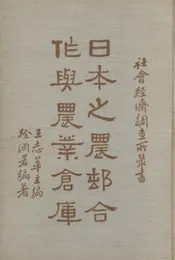 社會經濟調查所叢書
日本之農邨合
作與農業倉庫
王志莘主編
徐淵若編著